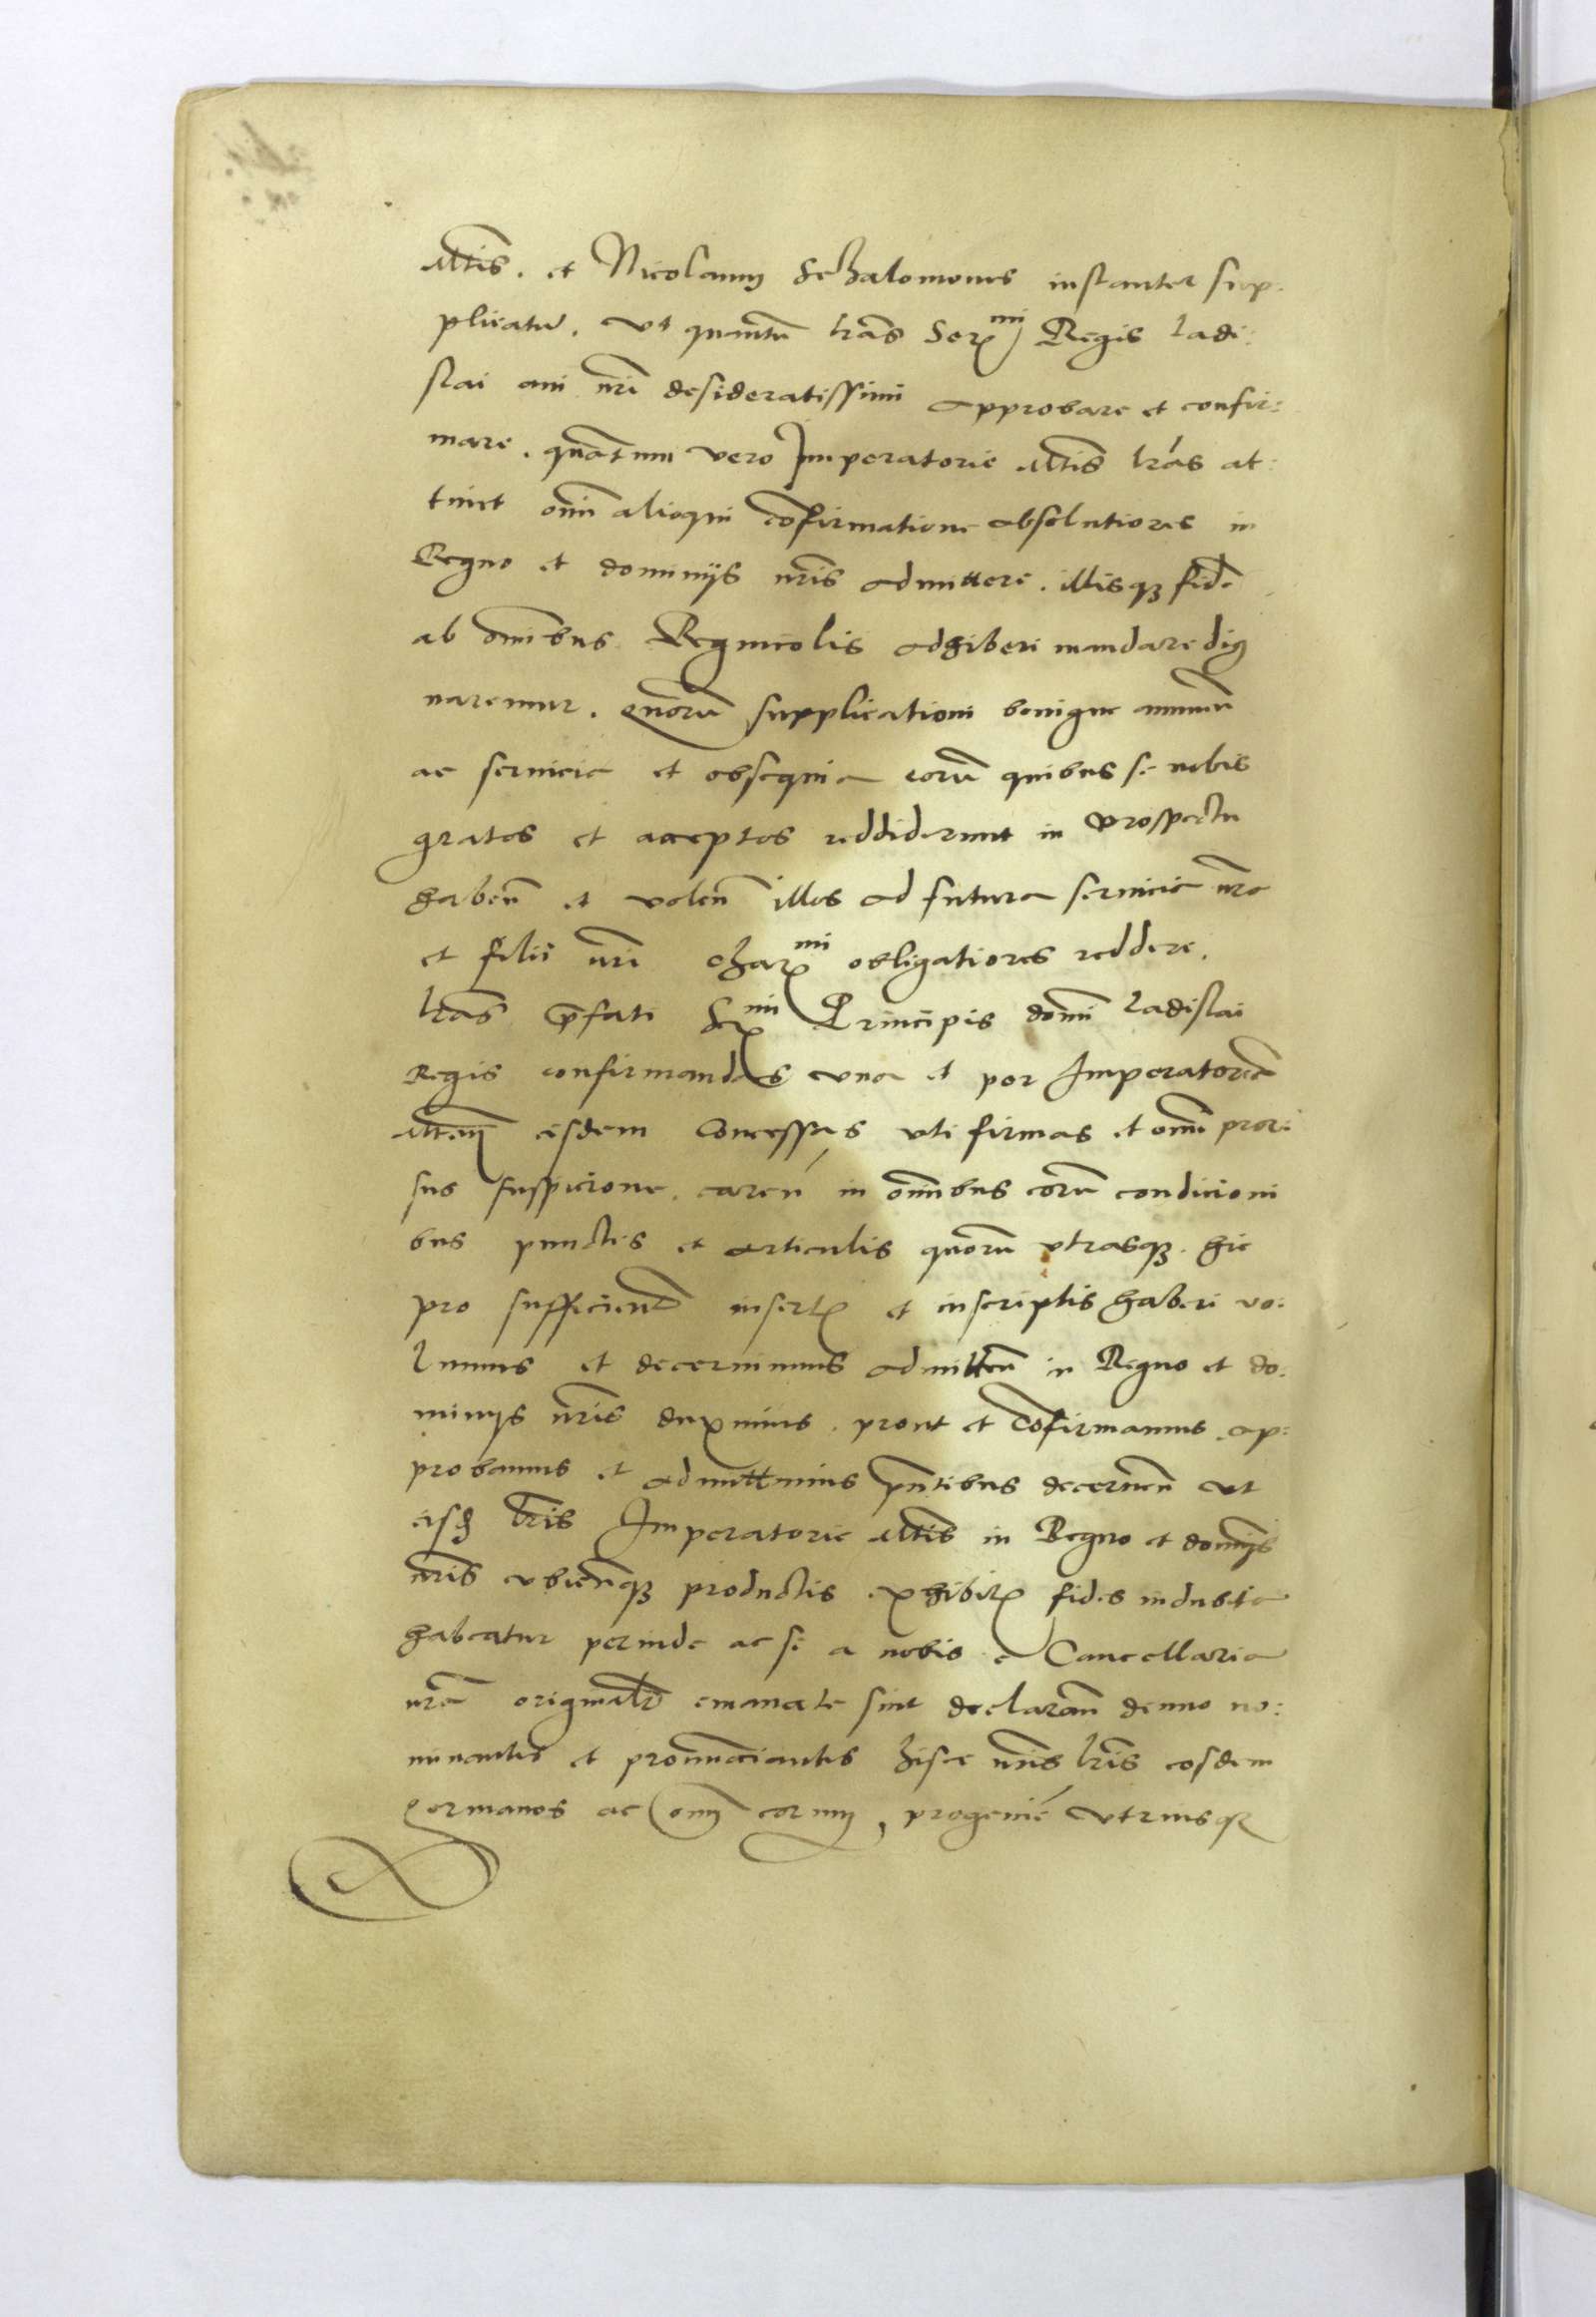 Mtis. et Nicolaum Schalomones instanter sup:
plicatũ. vt quantũ lrãs Serᵐⁱ Regis Ladi:
slai aui nrĩ desideratissimi approbare et confir:
mare. quãtum vero Imperatorie Mtis lrãs at:
tinet omĩ alioqui cõfirmatione absolutiores in
Regno et dominijs nrĩs admittere. illisqȝ fidẽ
ab omĩbus Regnicolis adhiberi mandare dig
naremur. Quorũ supplicationi benigne annuẽ
ac seruicia et obsequia eorũ quibus se nobis
gratos et acceptos reddiderunt in prospectu
habeñ et voleñ illos ad futura seruicia nrã
et filii nrĩ charᵐⁱ obligatiores reddere.
lrãs p̃fati Serᵐⁱ Principis domĩ Ladislai
Regis confirmandas vna et per Imperatoreã
Mtem eisdem Concessas vti firmas et omĩ pror:
sus suspicione. careñ in omĩbus eorũ condicioni
bus punctis et articulis quorũ vtrasqȝ. hic
pro sufficienter insertis et inscriptis haberi vo:
lumus et decernimus admitteñ in Regno et do:
minijs nrĩs duximus. prout et cõfirmamus. ap:
probamus et admittimus pñtibus decerneñ vt
eisdẽ lrĩs Imperatorie Mtis in Regno et dominijs
nrĩs vbicũqȝ productis exhibitis fides indubita
habeatur perinde ac si a nobis e Cancellaria
nrã originalr̃ emanate sint declarañ denuo no:
minantes et pronunciantes hisce nrĩs lrĩs eosdem
germanos ac omẽ eorum, progeniẽ vtriusqȝ